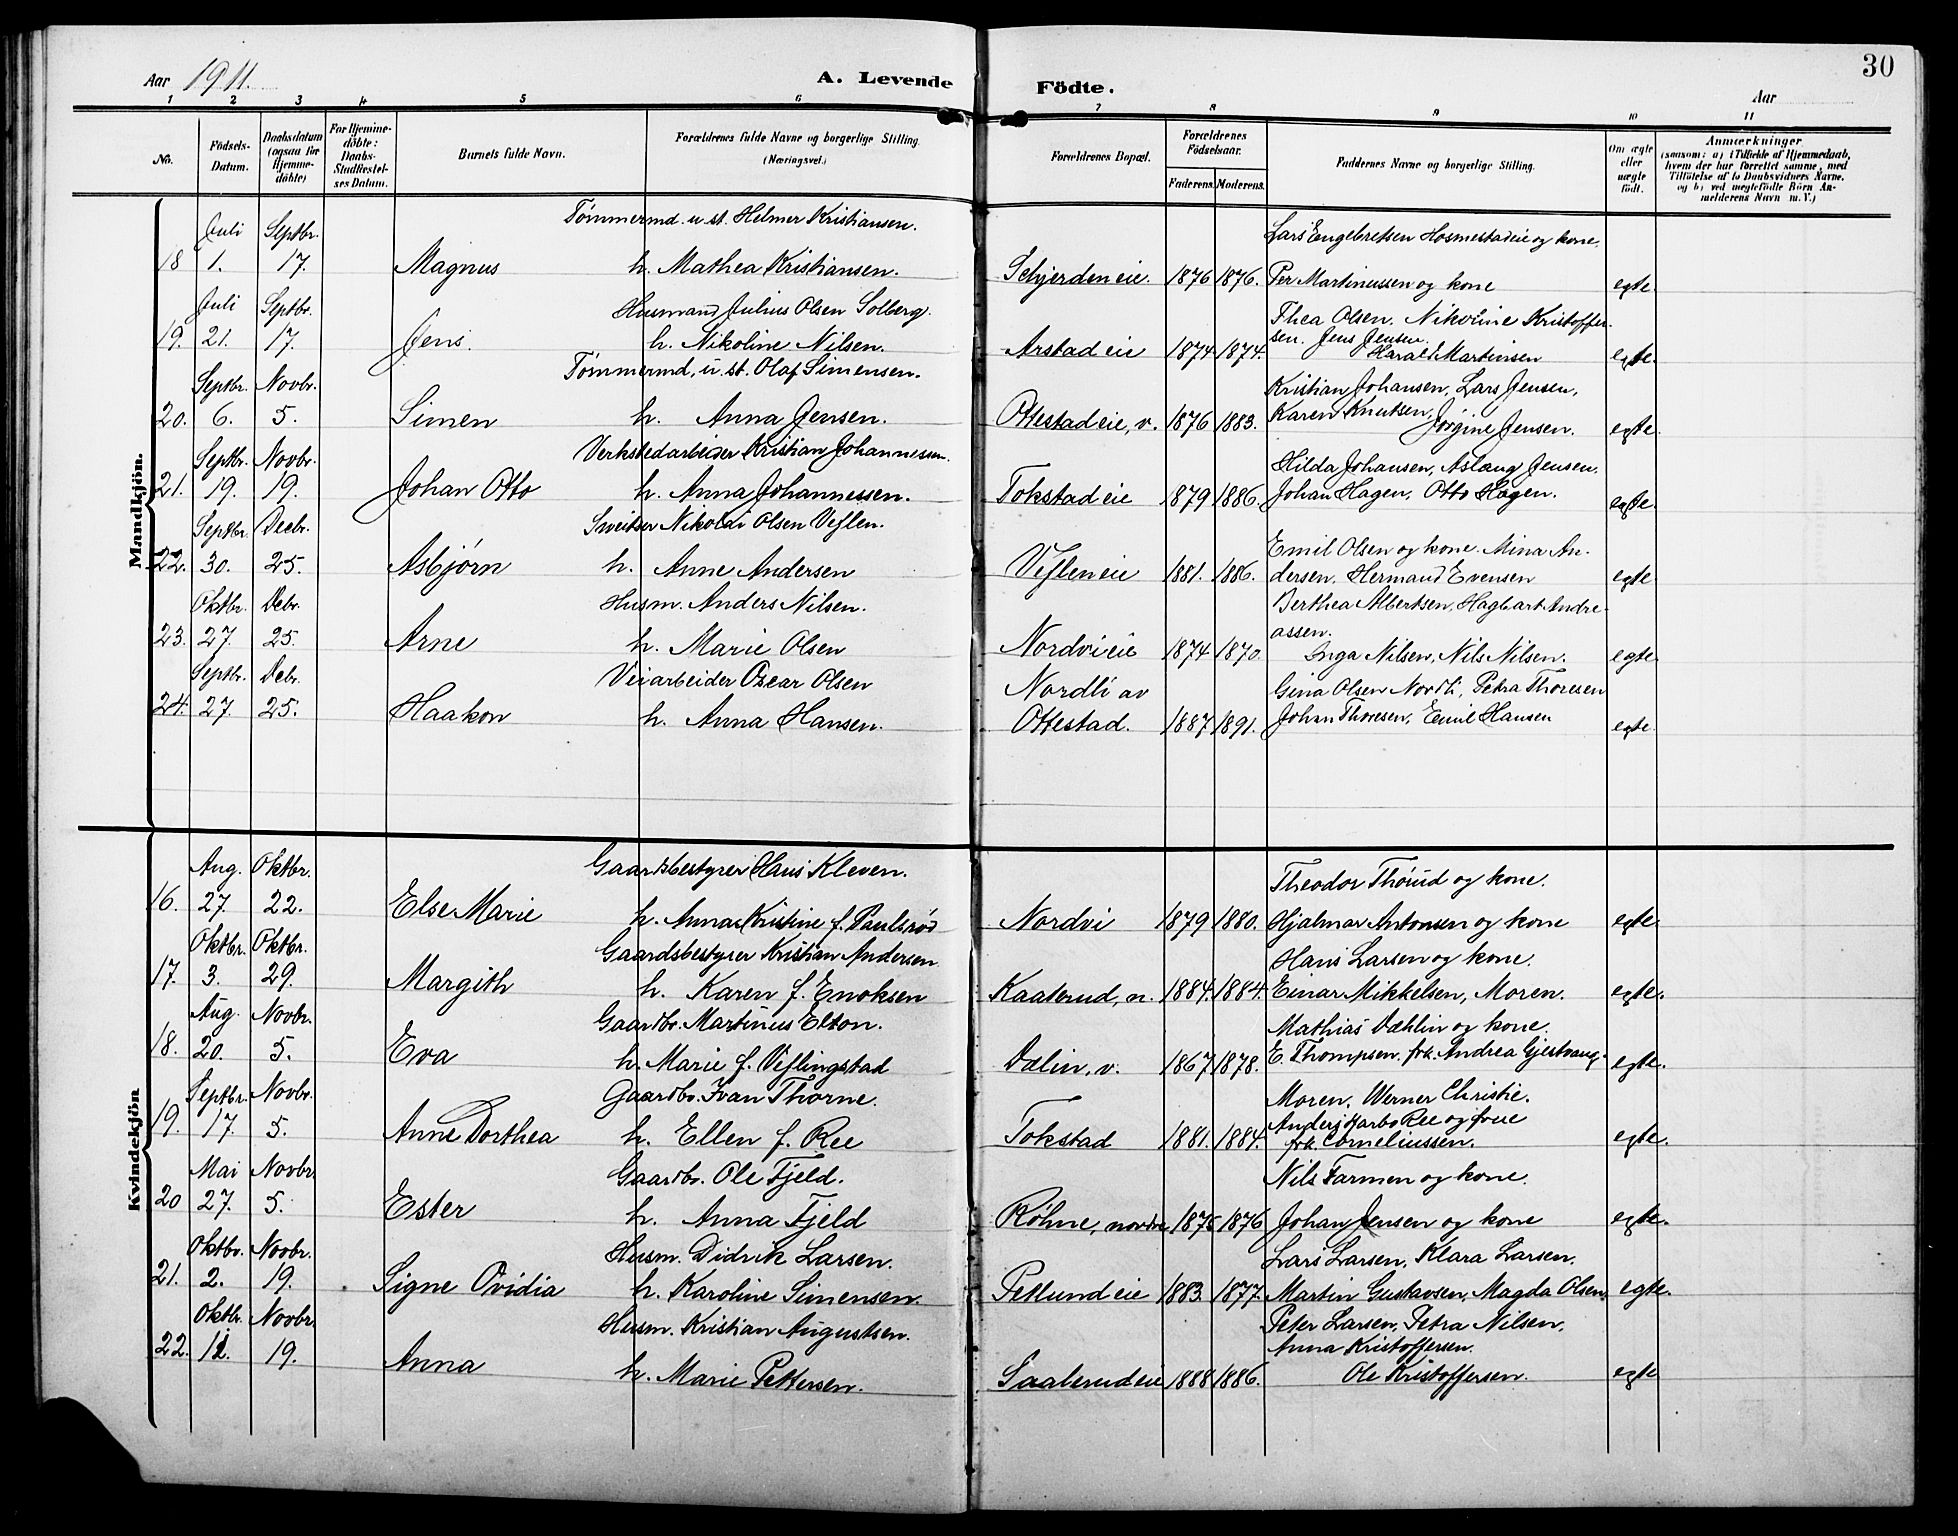 30
Aar 1911. A. Levende Födte. Aar
1 2 3 4 5 6 7 8 9 10 11
No. Födsels-Datum. Daabsdatum (ogsaa for Hjemme-döbte) For Hjemme-döbte: Daabs-Stadfæstel-ses Datum. Barnets fulde Navn. Forældrenes fulde Navne og borgerlige Stilling. (Næringsvei.) Forældrenes Bopæl. Forældrenes Födselsaar. Faderens. Moderens. Faddernes Navne og borgerlige Stilling. Om ægte eller uægte födt. Anmærkninger (saasom: a) i Tilfælde af Hjemmedaab, hvem der har forrettet samme, med Tilföielse af to Daabsvidners Navne, og b) ved uægtefödte Börn An-melderens Navn m. V.)
Mandkjön.
Juli Septbr. Tømmermd. u. st. Helmer Kristiansen. Lars Engebretsen Hosmestadeie og kone.
18 1. 17. Magnus h. Mathea Kristiansen. Schjerden eie. 1876 1876. Per Martinussen og kone egte.
Juli Septbr. Husmand Julius Olsen Solberg. Thea Olsen. Nikoline Kristoffer-
19. 21. 17. Jens. h. Nikoline Nilsen. Arstad eie 1874 1874. sen. Jens Jensen. Harald Martinsen egte.
Septbr. Novbr. Tømmermd, u. st. Olaf Simensen. Kristian Johansen, Lars Jensen,
20. 6. 5. Simen h. Anna Jensen. Ottestad eie, v. 1876 1883. Karen Knutsen, Jørgine Jensen. egte.
Septbr. Novbr. Verkstedarbeider Kristian Johannessen. Hilda Johansen, Aslaug Jensen.
21. 19. 19. Johan Otto h. Anna Johannessen. Tokstad eie 1879 1886. Johan Hagen, Otto Hagen. egte.
Septbr. Decbr. Sweitser Nikolai Olsen Veflen. Emil Olsen og kone. Mina An-
22. 30. 25. Asbjørn h. Anne Andersen Veflen eie 1881. 1886. dersen. Hermand Evensen egte
Oktbr. Debr. Husm. Anders Nilsen. Berthea Albertsen, Hagbart Andre-
23. 27. 25. Arne h. Marie Olsen Nordvi eie 1874 1870. assen. Inga Nilsen, Nils Nilsen. egte.
Septbr. Debr. Veiarbeider Oscar Olsen Nordli av Gina Olsen Nordli, Petra Thoresen
24. 27. 25. Haakon h. Anna Hansen. Ottestad. 1887 1891. Johan Thoresen, Emil Hansen egte.
Kvindekjön
Aug. Oktbr. Gaardsbestyrer Hans Kleven. Theodor Thorud og kone.
16. 27. 22. Else Marie h. Anna Kristine f. Paulsrød Nordvi 1879 1880. Hjalmar Antonsen og kone egte.
Oktbr. Oktbr. Gaardsbestyrer Kristian Andersen Hans Larsen og kone.
17. 3. 29. Margith h. Karen f. Enoksen Kaaterud, n. 1884. 1884. Einar Mikkelsen, Moren. egte.
Aug. Novbr. Gaardbr. Martinus Elton. Mathias Dæhlin og kone.
18. 20. 5. Eva h. Marie f. Veflingstad Dælin, v. 1867 1878. E. Thompsen. frk. Andrea Gjestvang. egte.
Septbr. Novbr. Gaardbr. Ivan Thorne. Moren. Werner Christie.
19. 17. 5. Anne Dorthea h. Ellen f. Ree Tokstad 1881. 1884. Anders Harbo Ree og frue frk. Corneliussen. egte.
Mai Novbr. Gaardbr. Ole Fjeld. Nils Farmen og kone.
20 27. 5. Ester h. Anna Fjeld Røhne, nordre 1875 1876 Johan Jensen og kone egte.
Oktbr. Novbr. Husm. Didrik Larsen. Lars Larsen, Klara Larsen.
21. 2. 19. Signe Ovidia h. Karoline Simensen. Petlund eie 1883. 1877. Martin Gustavsen, Magda Olsen. egte.
Oktbr. Novbr. Husm. Kristian Augustsen. Peter Larsen, Petra Nilsen.
22. 12. 19. Anna h. Marie Pettersen. Saalerud eie 1888 1886. Anna Kristoffersen. Ole Kristoffersen. egte